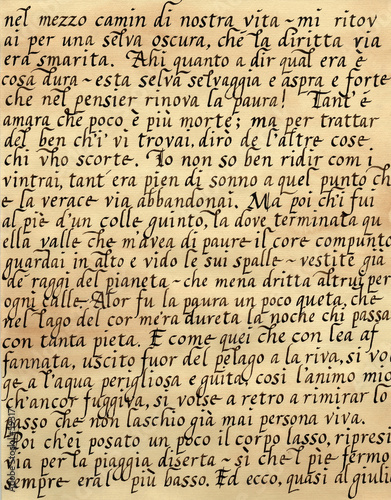 nel mezzo camin di nostra vita ~ mi ritov
ai per una selva oscura, ché la diritta via
era smarita. Ahi quanto a dir qual era è
cosa dura ~ esta selva selvaggia e aspra e forte
che nel pensier rinova la paura! Tant'é
amara che poco è più morte; ma per trattar
del ben ch'i' vi trovai, dirò de l'altre cose
chi vho scorte. Io non so ben ridir com i
vintrai, tant era pien di sonno a quel punto ch
e la verace via abbandonai. Ma poi ch'i fui
al pie d'un colle guinto, la dove terminata qu
ella valle che m'avea di paure il core compunto
guardai in alto e vido le sui spalle ~ vestite già
de raggi del pianeta ~ che mena dritta altrui per
ogni calle. Alor fu la paura un poco queta, che
nel lago del cor m'era dureta la noche chi passa
con tanta pieta. E come quei che con lea af
fannata, uscito fuor del pelago a la riva, si vo
ge a l'aqua perigliosa e guita, così l'animo mio
ch'ancor fuggiva, si volse a retro a rimirar lo
passo che non laschio già mai persona viva.
oi ch'ei posato un poco il corpo lasso, ripresi
via per la piaggia diserta ~ sì che l piè fermo
sempre era l più basso. Ed ecco, quasi al giuli